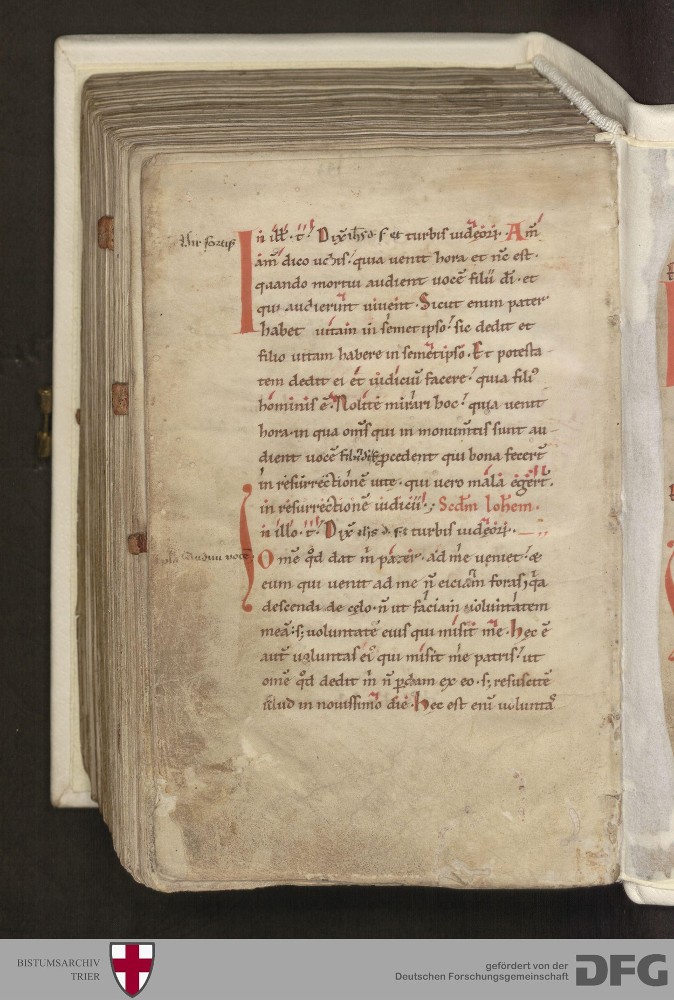 Vir fortis
In ill. t. Dix ihs d. s. et turbis iudeoꝝ. Am̄
am̄ dico uobis. quia uenit hora et nc̄ est.
quando mortui audient uocē filii dī. et
qui audierunt uiuent. Sicut enim pater
habet uitam in semet ipso. sic dedit et
filio uitam habere in semetipso. Et potesta-
tem dedit ei et iudiciū facere. quia filiꝰ
hominis ē. Nolite mirari hoc. quia uenit
hora. in qua om̄s qui in monum̄tis sunt au-
dient uocē filii dī. et ꝓcedent qui bona fecerт̄
in resurrectionē uite. qui uero mala egerт̄.
in resurrectionē iudicii. Scdm Iohem.
In illo. t. Dix ihs d. s. et turbis iudeoꝝ.
Audiui uocē
Ome qd dat m̄ pater. ad me ueniet. &
eum qui uenit ad me n̄ eiciam foras. qa
descendi de celo. n̄ ut faciam uoluntatem
meā. sꝫ uoluntatē eius qui misit me. hec ē
aut̄ uoluntas eiꝰ qui misit me patris. ut
omē qd dedit m̄ n̄ ꝑdam ex eo. sꝫ resuscitē
illud in nouissimo die. hec est enī uolunta
BISTUMSARCHIV
TRIER
gefördert von der
Deutschen Forschungsgemeinschaft
DFG